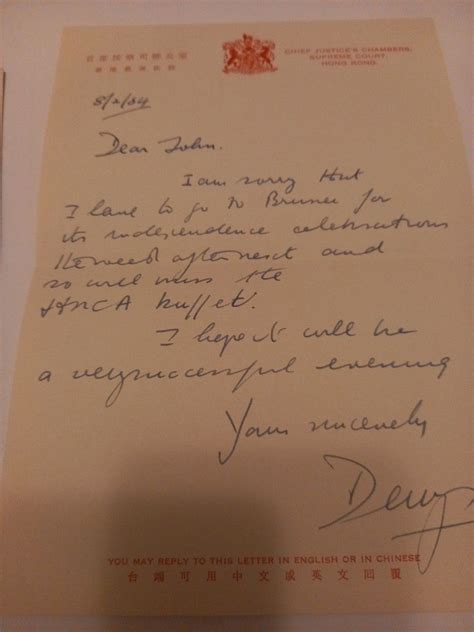 CHIEF JUSTICE'S CHAMBERS,
SUPREME COURT,
HONG KONG.
8/2/84
Dear John.
I am sorry that
I have to go to Brunei for
its independence celebrations
the week after next and
so will miss the
buffet.
I hope it will be
a very successful evening
Yours sincerely
YOU MAY REPLY TO THIS LETTER IN ENGLISH OR IN CHINESE
台端可用中文或英文回覆